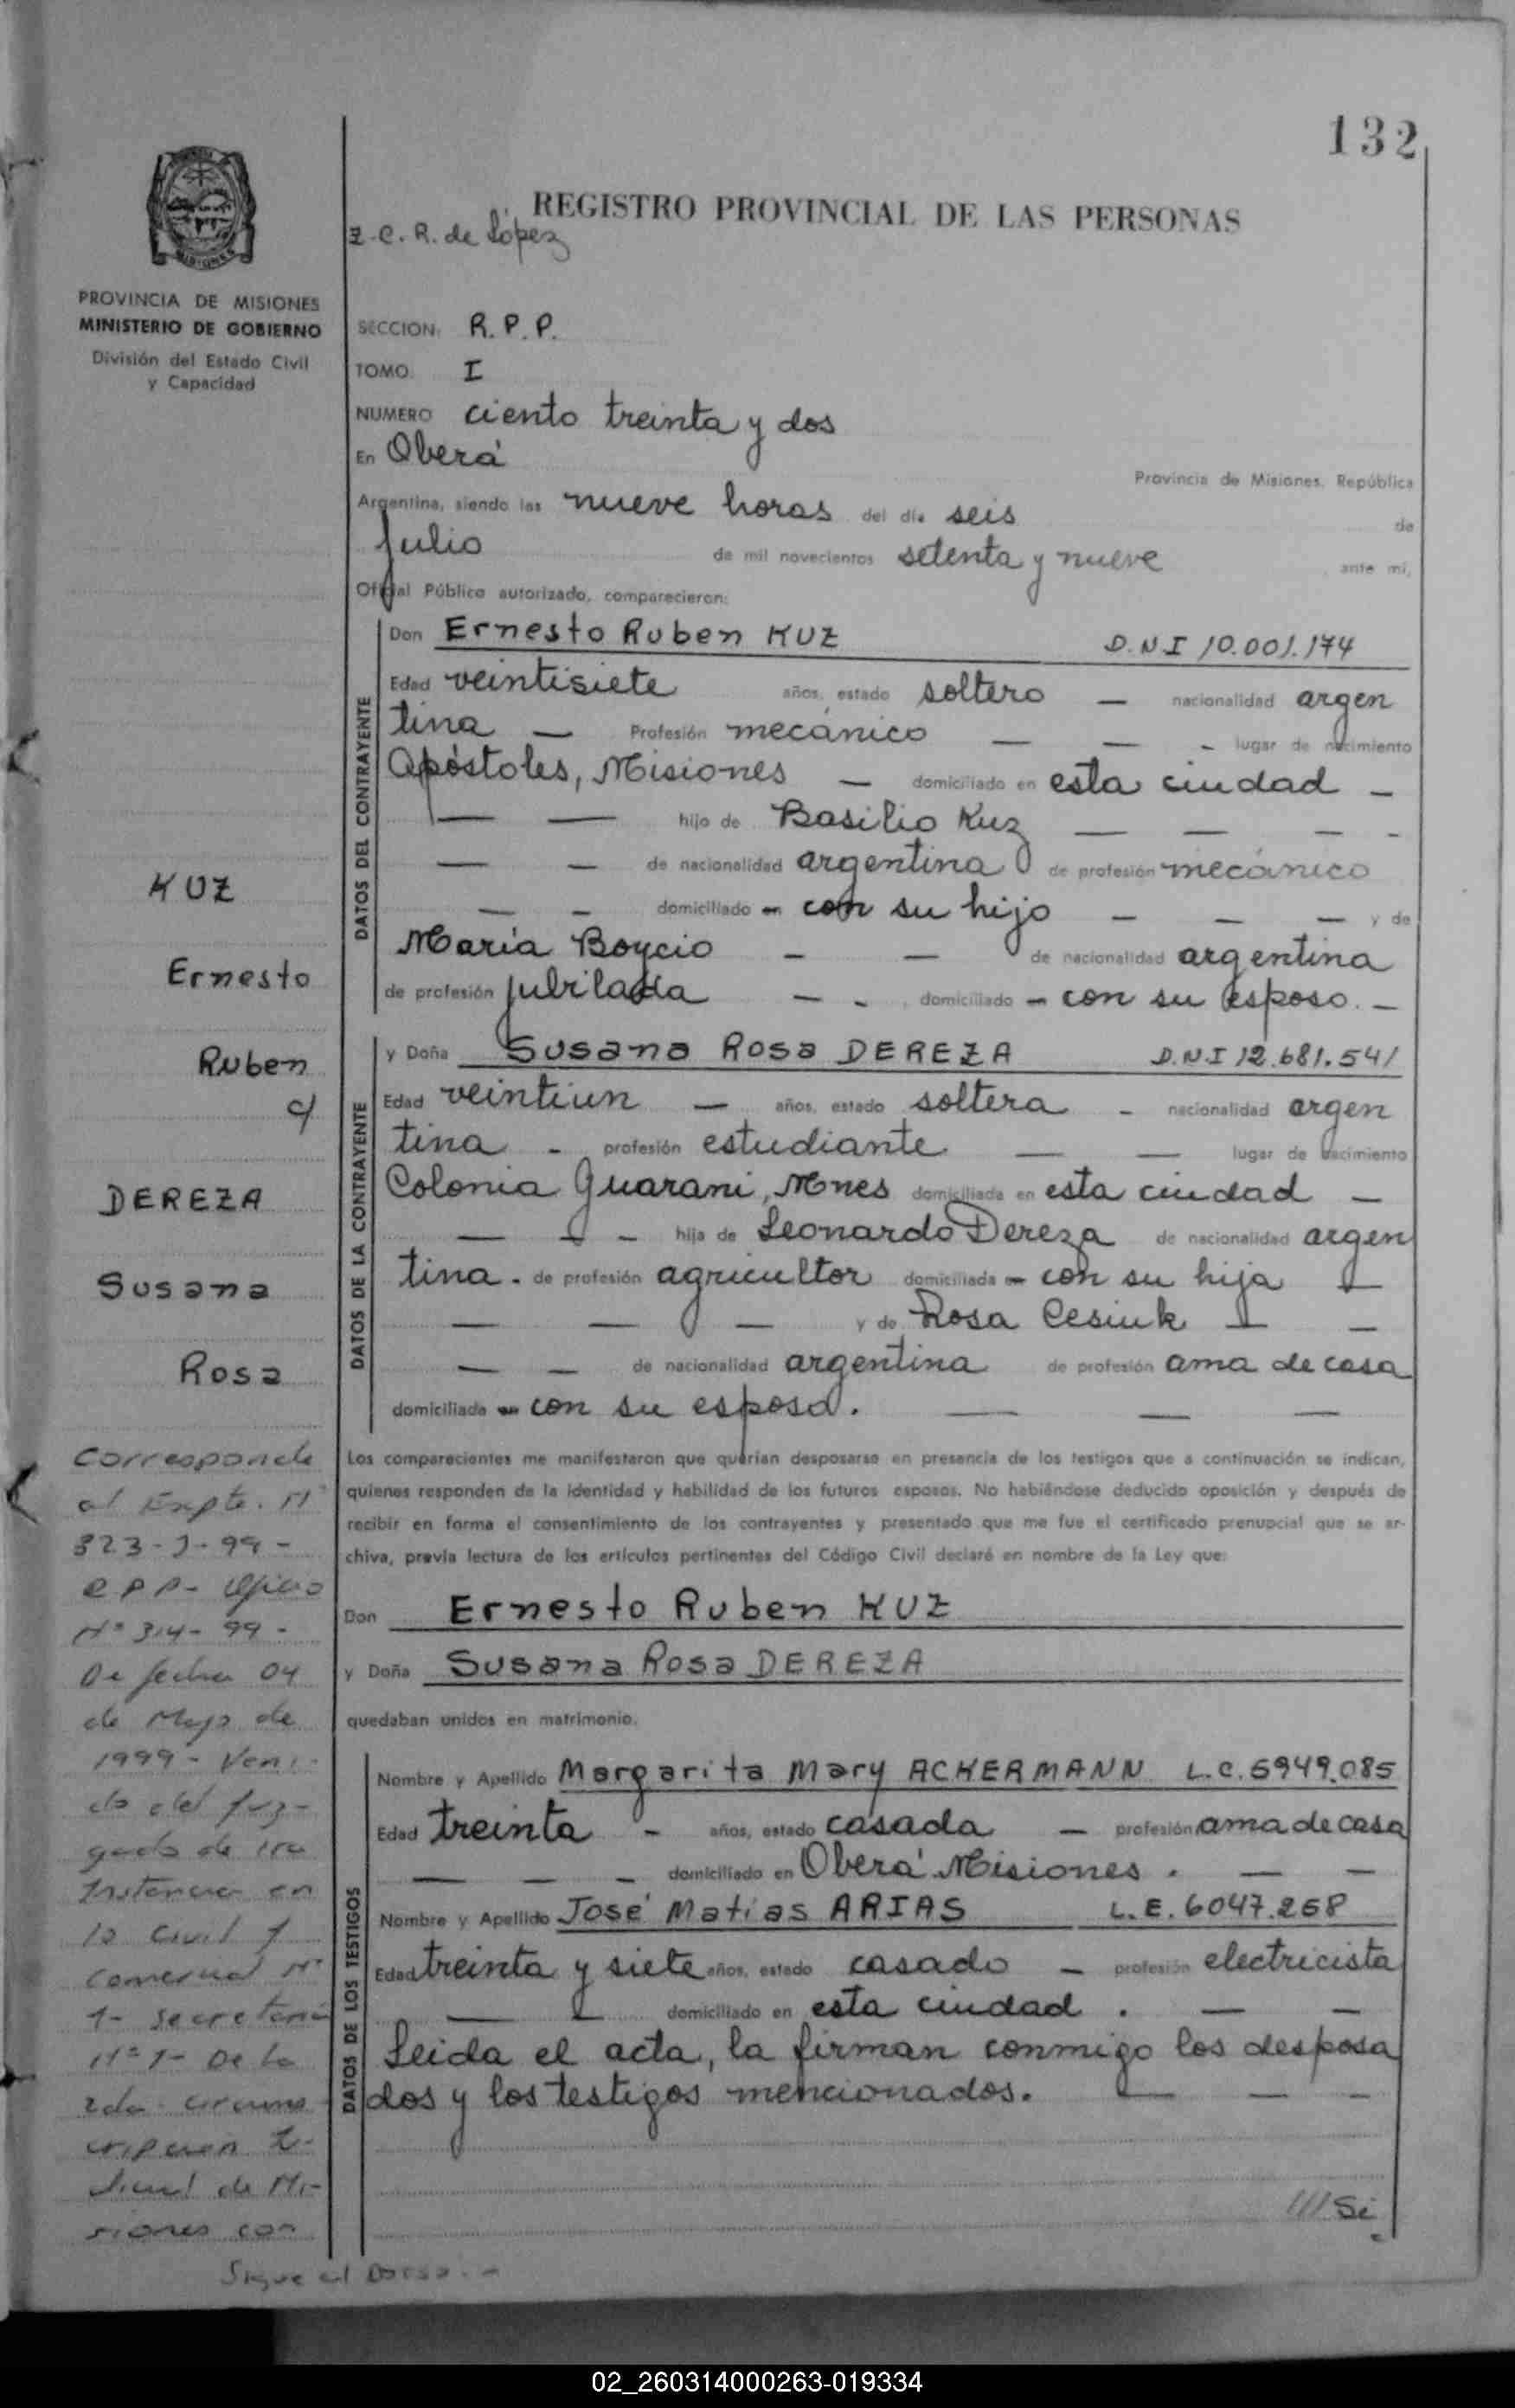 132
REGISTRO PROVINCIAL DE LAS PERSONAS
Z. C. R. de López
PROVINCIA DE MISIONES
MINISTERIO DE GOBIERNO
División del Estado Civil
y Capacidad
SECCION: R. P. P.
TOMO: I
NUMERO ciento treinta y dos
En Oberá
Provincia de Misiones, República
Argentina, siendo las nueve horas del día seis de
Julio de mil novecientos setenta y nueve ante mi,
Oficial Público autorizado, comparecieron:
DATOS DEL CONTRAYENTE
Don Ernesto Ruben KUZ D.N.I 10.001.174
Edad veintisiete años, estado soltero — nacionalidad argen
tina — Profesión mecánico — — - lugar de nacimiento
Apóstoles, Misiones — domiciliado en esta ciudad -
— — hijo de Basilio Kuz — — — -
— — de nacionalidad argentina de profesión mecánico
— - domiciliado en con su hijo - — — y de
María Boycio - — de nacionalidad argentina
de profesión jubilada — - domiciliado en con su esposo. —
DATOS DE LA CONTRAYENTE
y Doña Susana Rosa DEREZA D.N.I 12.681.541
Edad veintiun — años, estado soltera - nacionalidad argen
tina - profesión estudiante — — lugar de nacimiento
Colonia Guaraní, Mnes domiciliada en esta ciudad —
— — - hija de Leonardo Dereza de nacionalidad argen
tina - de profesión agricultor domiciliada en con su hija —
— — — y de Rosa Cesiuk — —
— — de nacionalidad argentina de profesión ama de casa
domiciliada en con su esposo. — — —
Los comparecientes me manifestaron que querían desposarse en presencia de los testigos que a continuación se indican,
quienes responden de la identidad y habilidad de los futuros esposos. No habiéndose deducido oposición y después de
recibir en forma el consentimiento de los contrayentes y presentado que me fue el certificado prenupcial que se ar-
chiva, previa lectura de los artículos pertinentes del Código Civil declaré en nombre de la Ley que:
Don Ernesto Ruben KUZ
y Doña Susana Rosa DEREZA
quedaban unidos en matrimonio.
DATOS DE LOS TESTIGOS
Nombre y Apellido Margarita Mary ACKERMANN L.C. 5949.085
Edad treinta - años, estado casada — profesión ama de casa
— — — domiciliado en Oberá Misiones. — —
Nombre y Apellido José Matías ARIAS L.E. 6047.258
Edad treinta y siete años, estado casado — profesión electricista
— — domiciliado en esta ciudad. — —
Leida el acta, la firman conmigo los desposa
dos y los testigos mencionados. — — —
///Si
KUZ
Ernesto
Ruben
c/
DEREZA
Susana
Rosa
Corresponde
al Expte. Nº
323-J-99-
R P P- Oficio
Nº 314-99-
De fecha 04
de Mayo de
1999- Veni-
do del Juz-
gado de 1ra
Instancia en
lo Civil y
Comercial Nº
1- Secretaria
Nº 1- De la
2da. Circuns
cripcion Ju-
dicial de Mi-
siones con
Sigue al Dorso.-
02_260314000263-019334